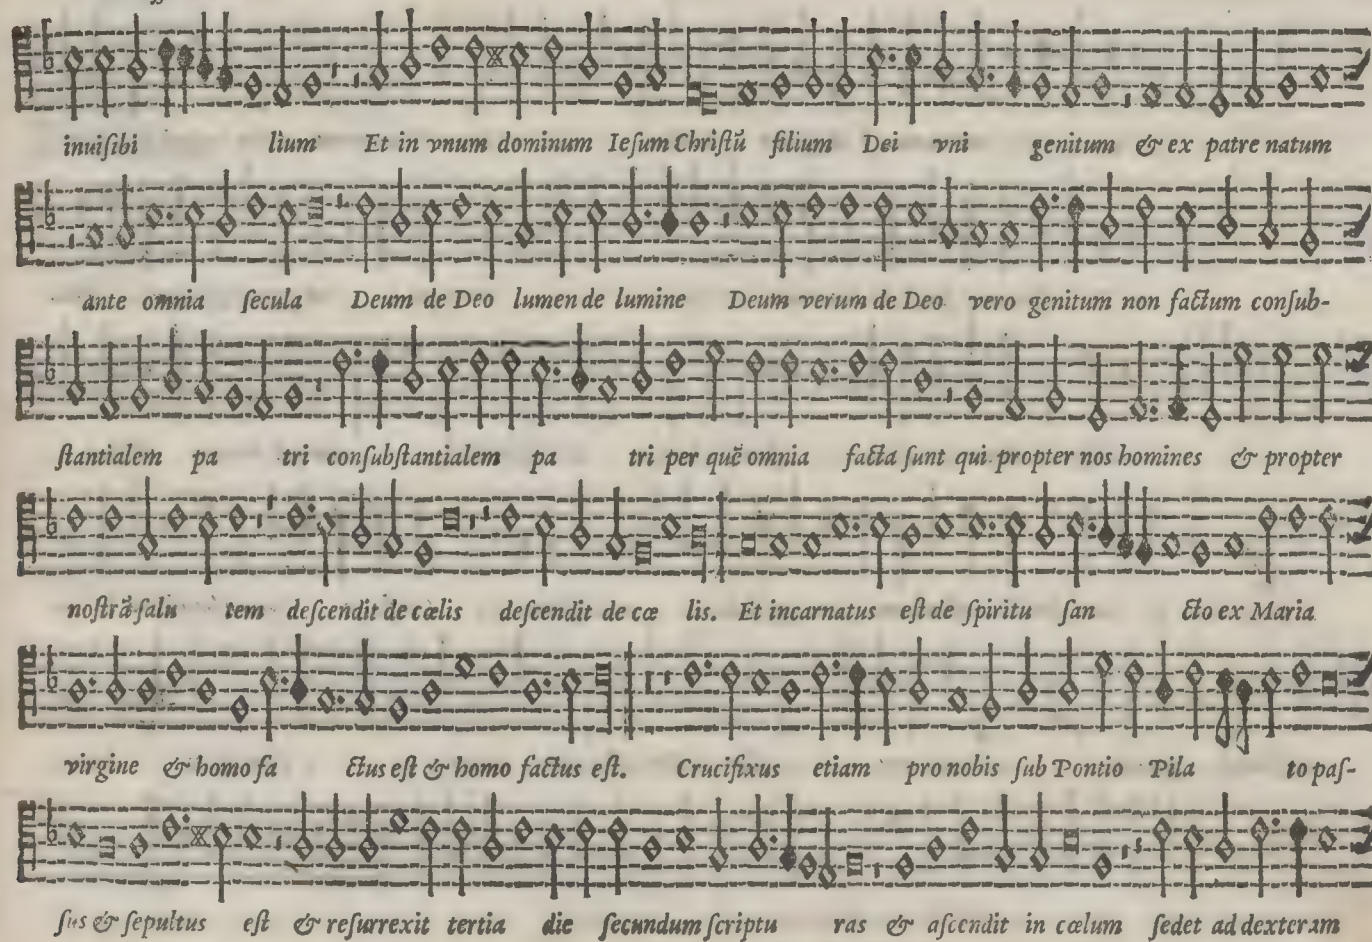 inuiſibi lium Et in vnum dominum Ieſum Chriſtũ filium Dei vni genitum & ex patre natum
ante omnia ſecula Deum de Deo lumen de lumine Deum verum de Deo vero genitum non factum conſub-
ſtantialem pa tri conſubſtantialem pa tri per quẽ omnia facta ſunt qui propter nos homines & propter
noſtrã ſalu tem deſcendit de cœlis deſcendit de cœ lis. Et incarnatus eſt de ſpiritu ſan cto ex Maria
virgine & homo fa ctus eſt & homo factus eſt. Crucifixus etiam pro nobis ſub Pontio Pila to paſ-
ſus & ſepultus eſt & reſurrexit tertia die ſecundum ſcriptu ras & aſcendit in cœlum ſedet ad dexteram